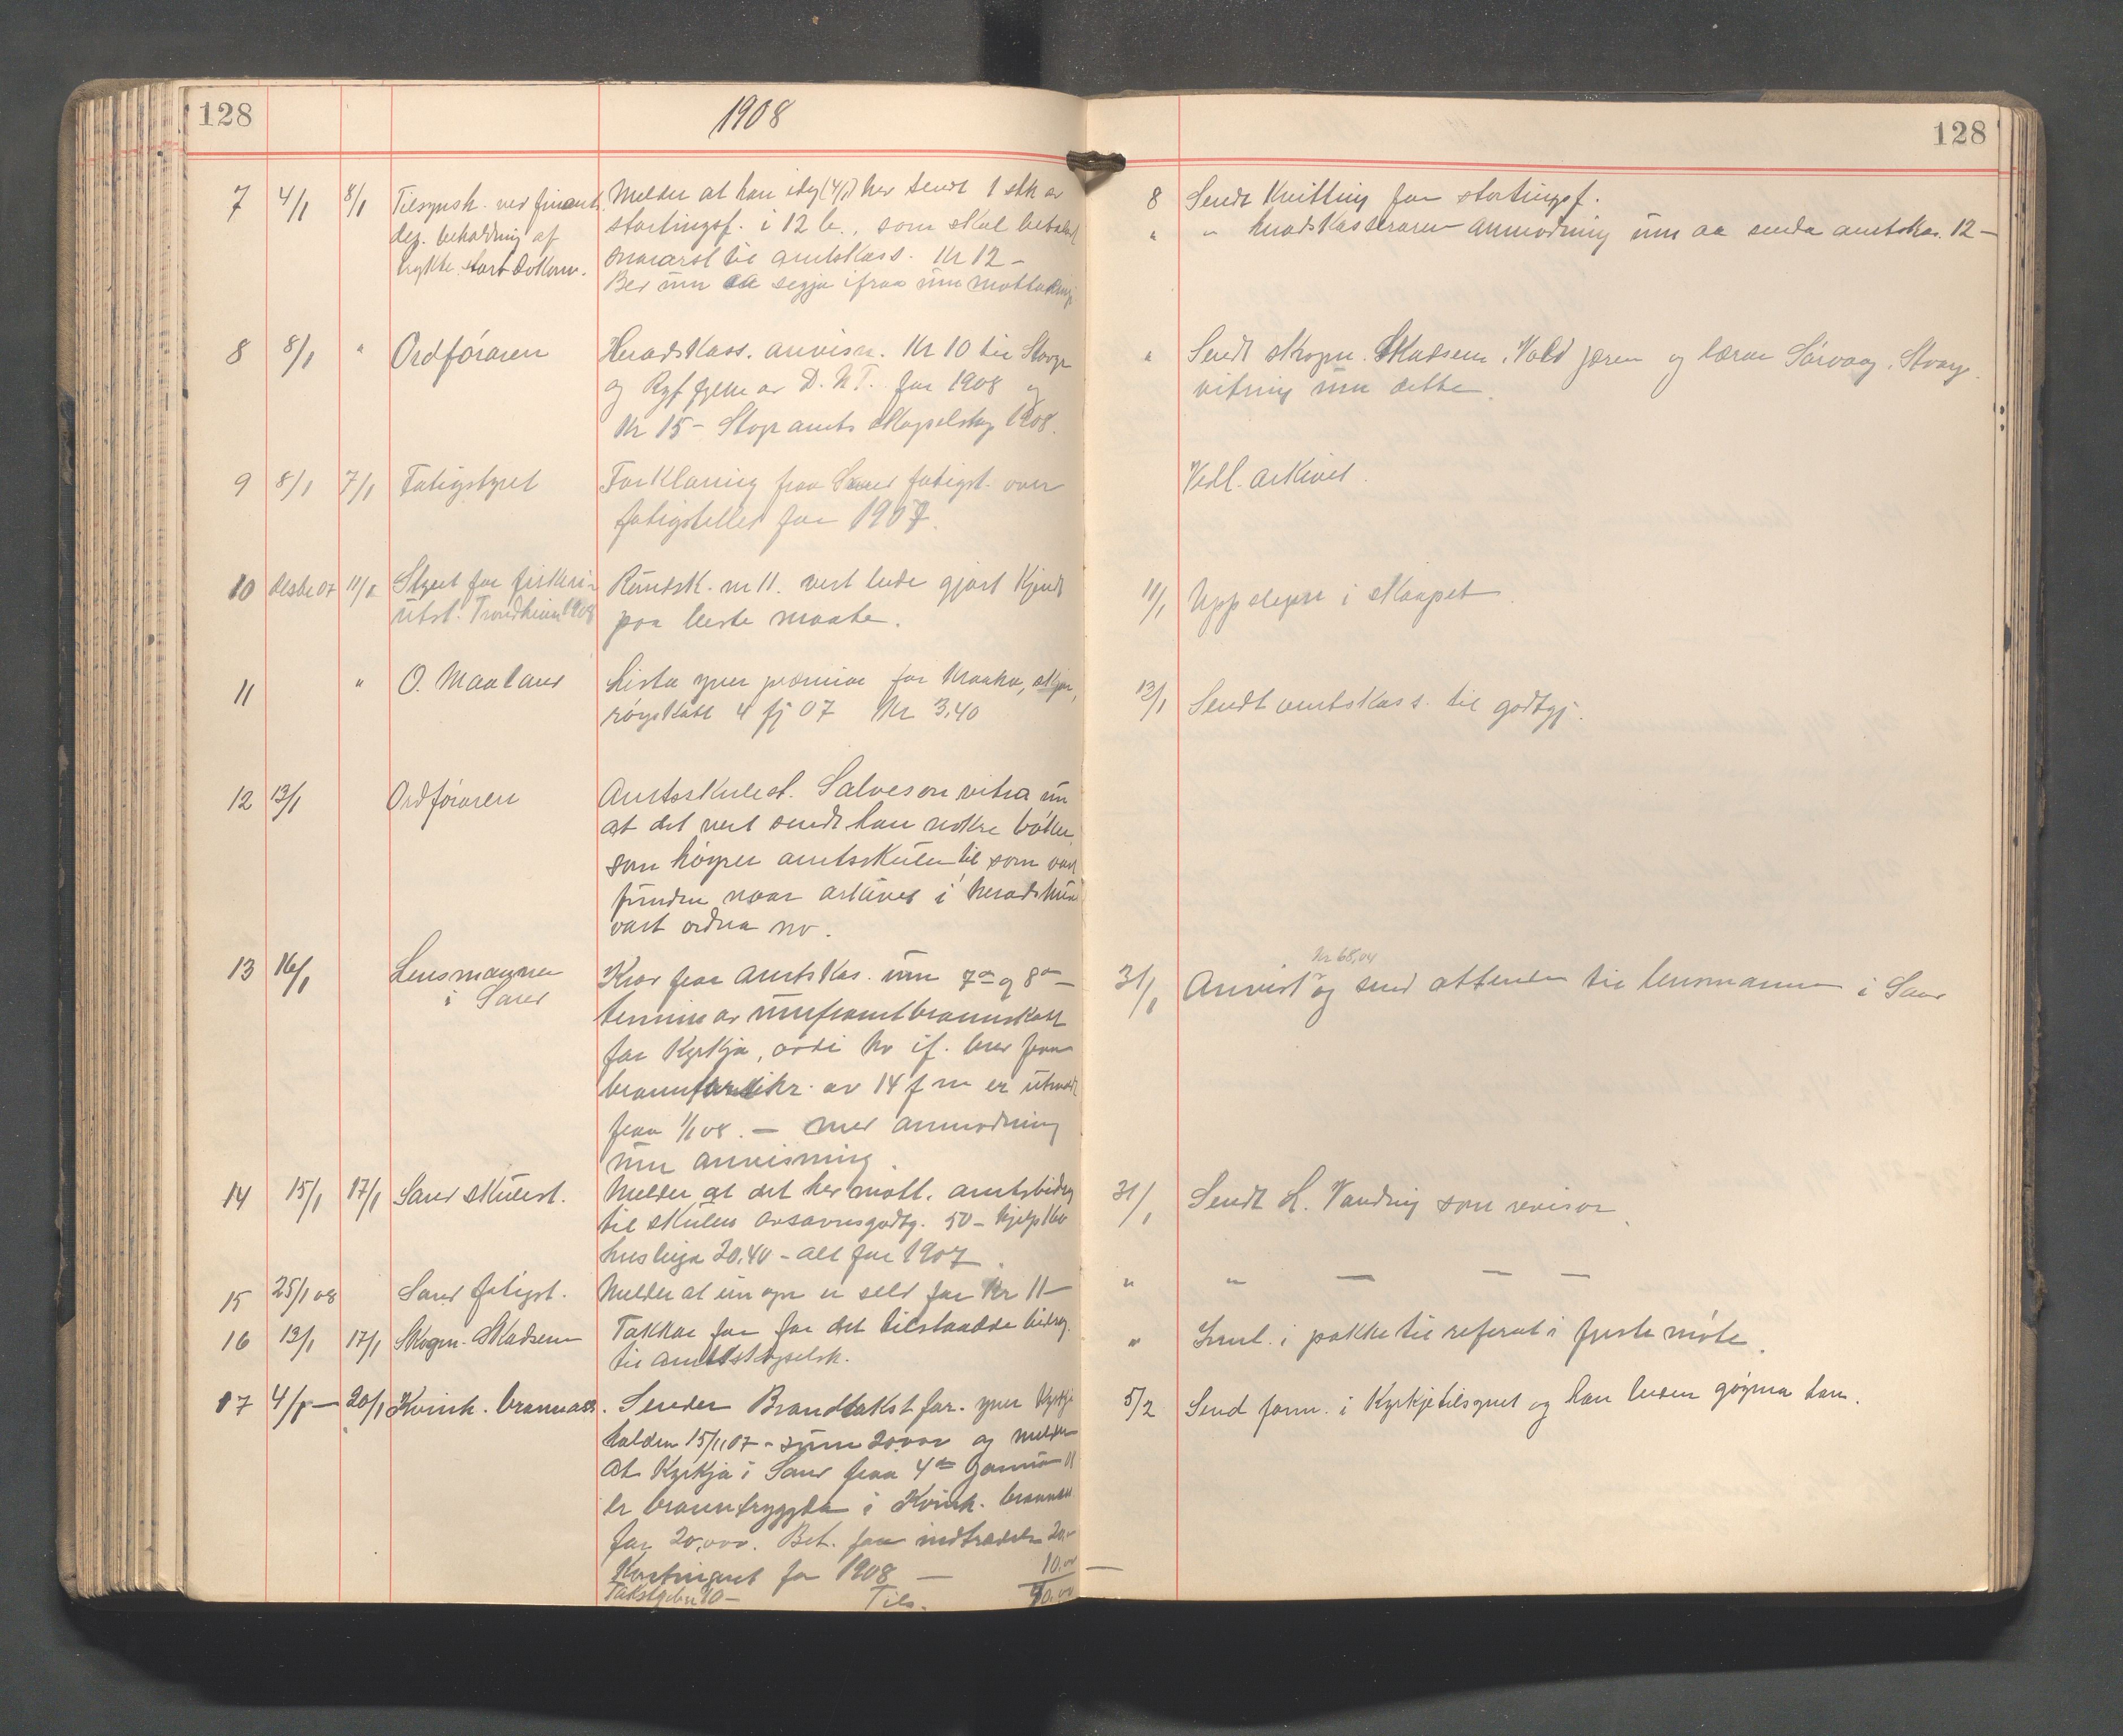 128
1908
128
7 4/1 8/1 Tilsynsk. ved finants
dep. behaldning af
trykte stort dokum.
Melder at han idag (4/1) hev sendt 1 stk av
stortingsf. i 12 b., som skal betalast
snarast til amtskass. Kr 12 –
Ber um aa segja ifraa um mottaking
8 Sendt Kvitting for stortingsf.
" " heradskasseraren anmodning um aa senda amtskas. 12 –
8 8/1 " Ordføraren
Heradskass. anvisn. Kr 10 til Stavgr
og Ryf fylke av D. N. T. for 1908 og
Kr 15 – Stavgr amts skogselskap 1908.
" Sendt skogpl. Skadsem, Vold jæren og lærar Sørvaag, Stvgr.
vitring um dette.
9 8/1 7/1 Fatigstyret
Forklaring fraa Sand fatigst. over
fatigstellet for 1907.
Vedl. arkivet.
10 desbr 07 11/1 Styret for fiskeri-
utst. Trondheim 1908
Rundsk. nr 11. vert bede gjort kjendt
paa beste maate.
11/1 Uppslegen i skaapet.
11 " O. Maaland
Lista yver præmiar for kraaka, skjor,
røyskatt 4 fj 07 Kr 3,40
13/1 Sendt amtskass. til godtgj.
12 13/1 Ordføraren
Amtsskulest. Salveson vitra um
at det vert sendt han nokre bøker,
som høyrer amtsskulen til som vart
funden naar arkivet i heradshuset
vart ordna no.
13 16/1 Lensmannen
i Sand
Krav fraa amtskas. um 7de og 8de
termin av umframt brannskatt
for Kyrkja, avdi ho if. brev fraa
brannforsikr. av 14 f m er utmeldt
fraa 1/1 08. – med anmodning
um anvisning.
Kr 68,04
31/1 Anvist og send attende til lensmannen i Sand
14 15/1 17/1 Sand skulest.
Melder at det hev mott. amtsbidrag
til skulen avsavnsgodtg. 50 – hjelp
husleiga 20,40 – alt for 1907.
31/1 Sendt L. Vandvig som revisor.
15 25/1 08 Sand fatigst.
Melder at ein opn er seld for Kr 11 –
" " — — —
16 13/1 17/1 Skogpl. Skadsem
Takkar for for det tilstaadde bidrag
til amtsskogselsk.
" Innl. i pakke til referat i fyrste møte.
17 4/1 – 20/1 Kvinh. brannass.
Sender Brandtakst for. yver Kyrkja
halden 15/11 07 – sum 20000 og melder
at Kyrkja i Sand fraa 4de Januar
er branntryggda i Kvinh. brannass
for 20,000. Bet. for indtrædels 20,–
Kontingent for 1908 – 10,00
Takstgebyr 10 – Tils. 40,00
5/2 Send form. i Kyrkjetilsynet og han beden gøyma dem.